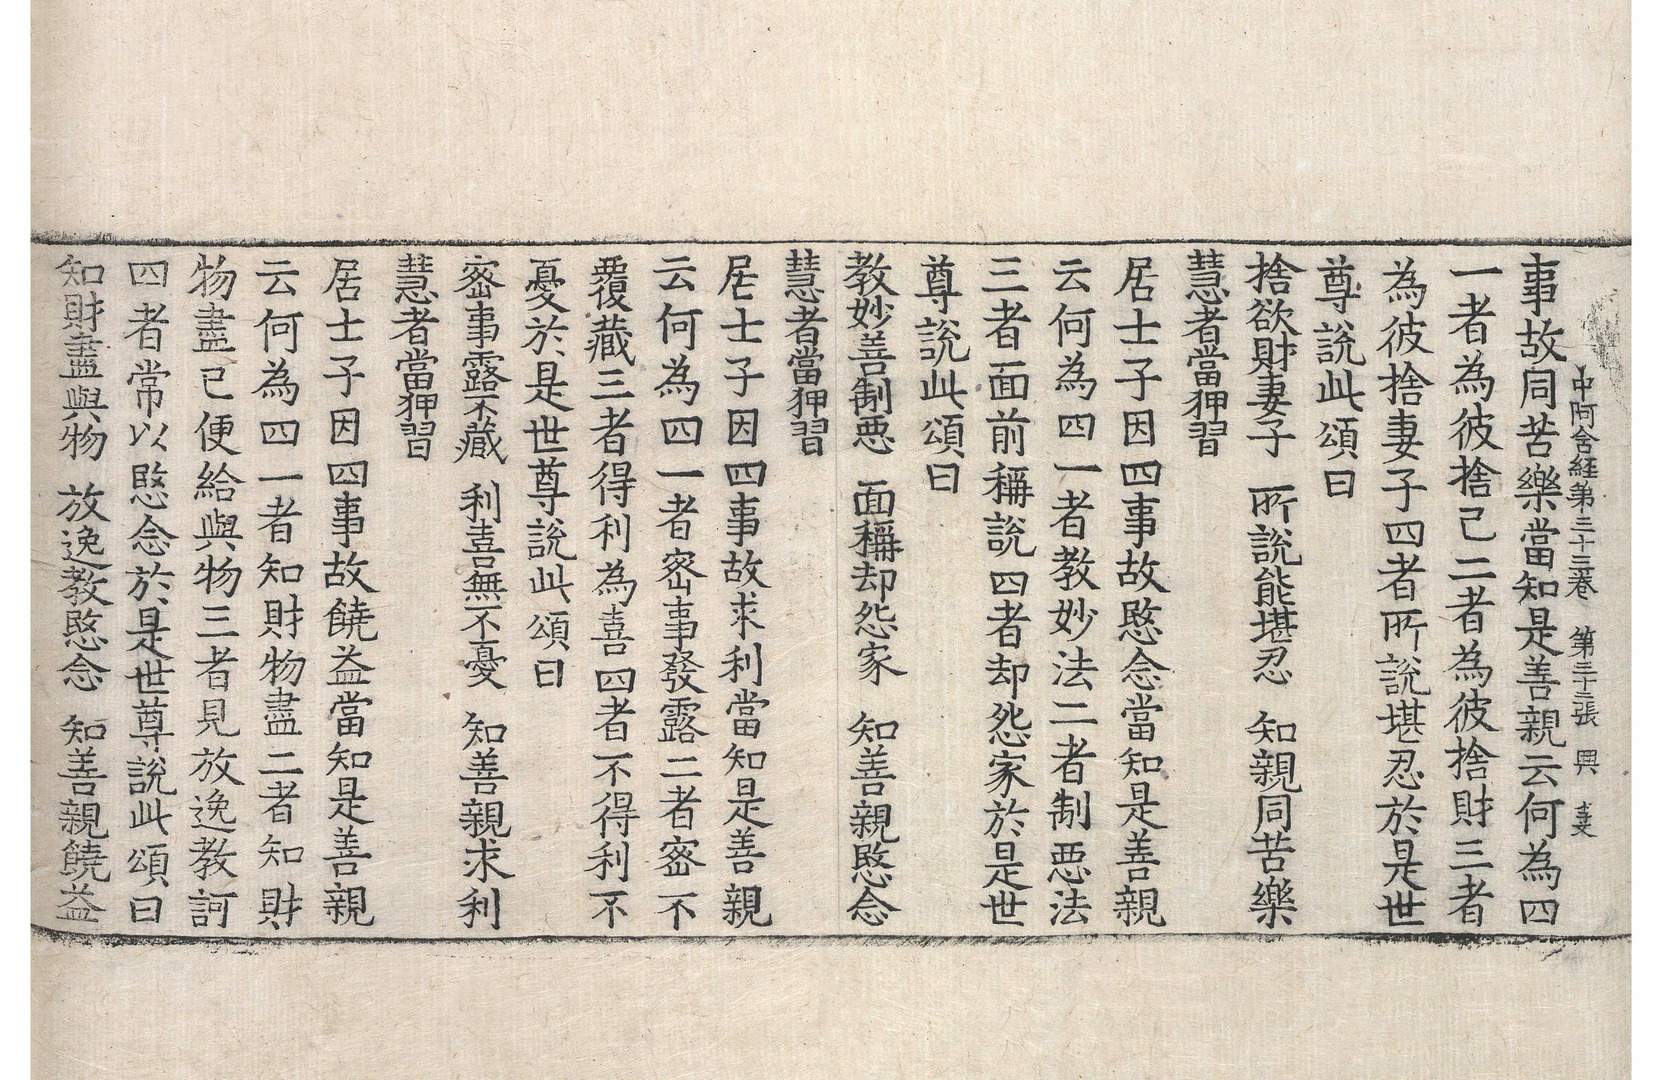 中阿含経第三十三卷 第三十三張 興
事故同苦樂當知是善親云何為四
一者為彼捨己二者為彼捨財三者
為彼捨妻子四者所說堪忍於是世
尊說此頌曰
捨欲財妻子 所說能堪忍 知親同苦樂
慧者當狎習
居士子因四事故愍念當知是善親
云何為四一者教妙法二者制惡法
三者面前稱說四者却怨家於是世
尊說此頌曰
教妙善制惡 面稱却怨家 知善親愍念
慧者當狎習
居士子因四事故求利當知是善親
云何為四一者密事發露二者密不
覆藏三者得利為喜四者不得利不
憂於是世尊說此頌曰
密事露不藏 利喜無不憂 知善親求利
慧者當狎習
居士子因四事故饒益當知是善親
云何為四一者知財物盡二者知財
物盡已便給與物三者見放逸教訶
四者常以愍念於是世尊說此頌曰
知財盡與物 放逸教愍念 知善親饒益